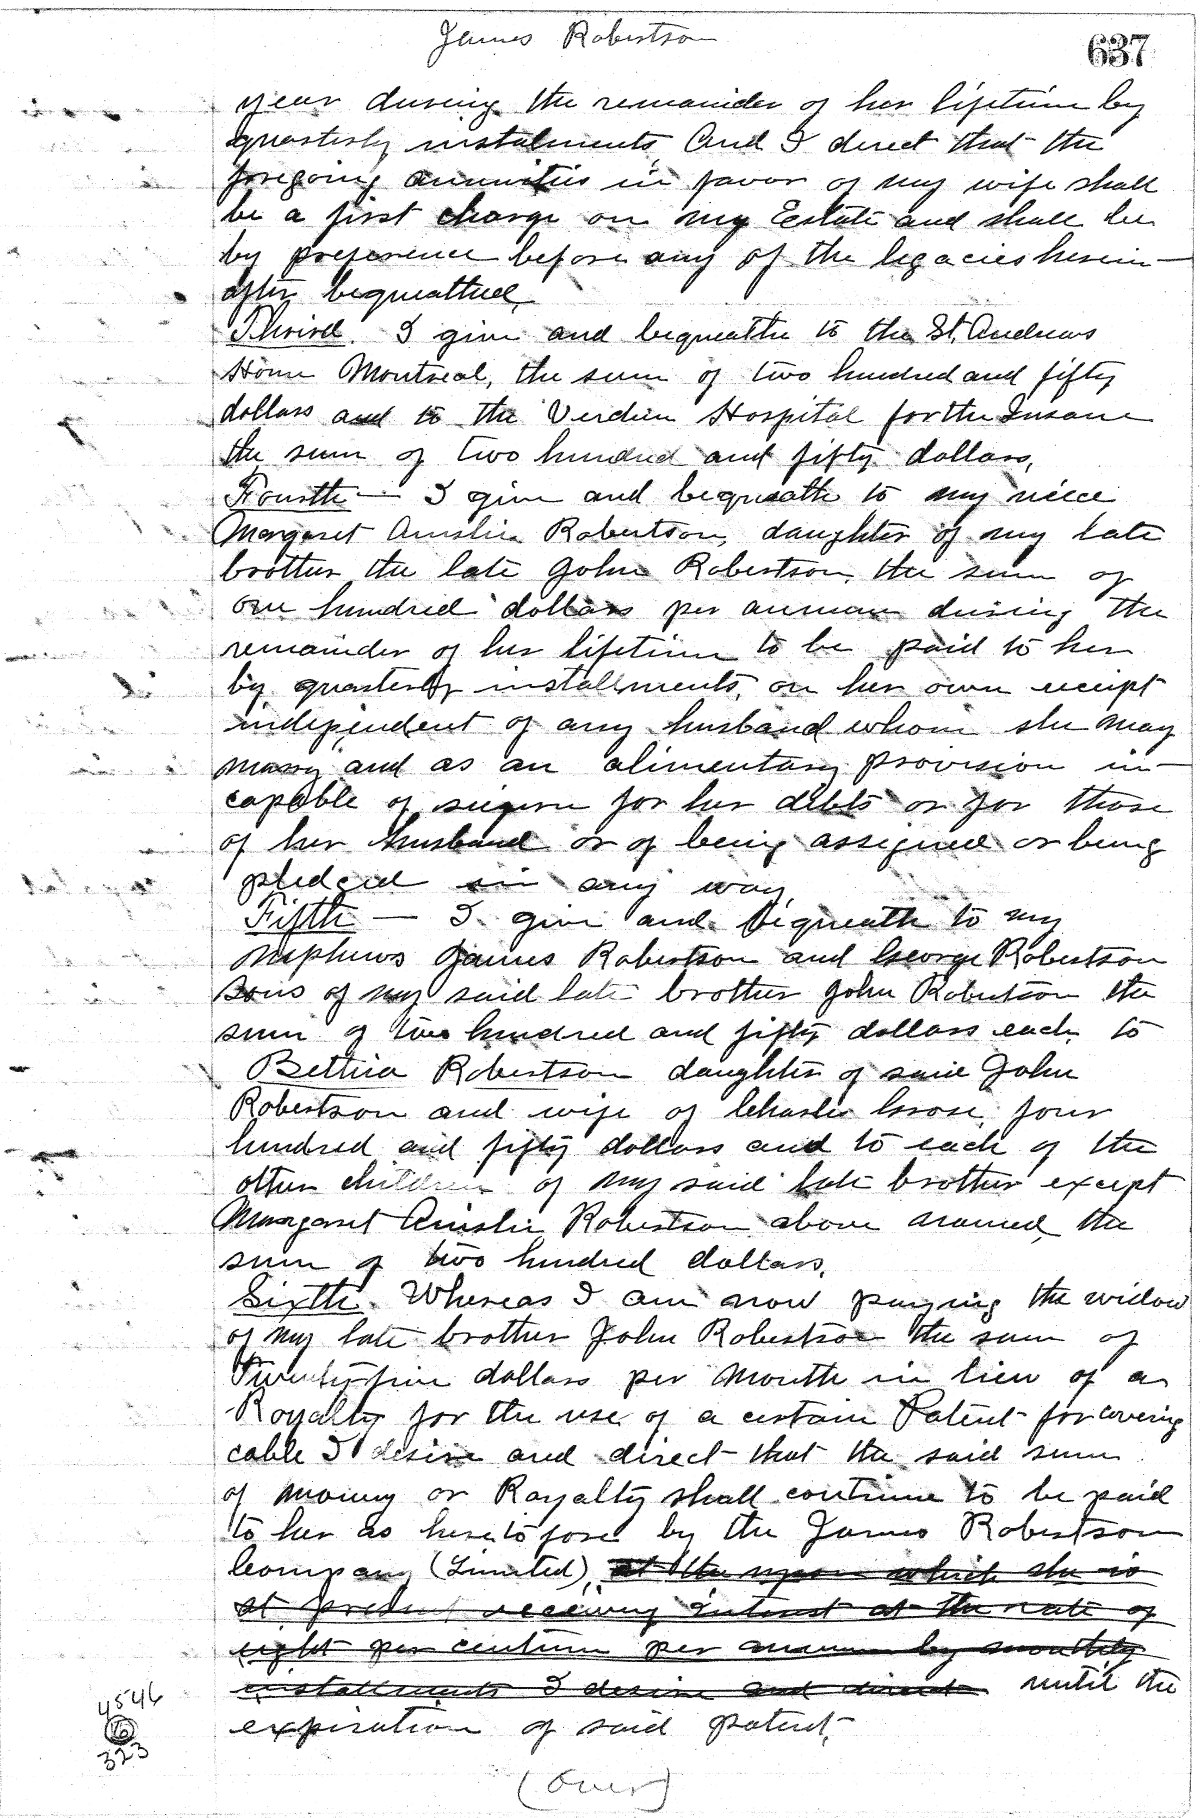 James Robertson
637
year during the remainder of her lifetime by
quarterly instalments, And I direct that the
foregoing annuities in favor of my wife shall
be a first charge on my Estate and shall be
by preference before any of the legacies herein-
after bequeathed,
Third. I give and bequeathe to the St. Andrews
Home Montreal, the sum of two hundred and fifty
dollars and to the Verdun Hospital for the Insane
the sum of two hundred and fifty dollars,
Fourth — I give and bequeathe to my niece
Margaret Ainslie Robertson, daughter of my late
brother the late John Robertson, the sum of
one hundred dollars per annum during the
remainder of her lifetime to be paid to her
by quarterly installments, on her own receipt
independent of any husband whom she may
marry and as an alimentary provision in-
capable of seizure for her debts or for those
of her husband or of being assigned or being
pledged in any way,
Fifth — I give and bequeath to my
nephews James Robertson and George Robertson
sons of my said late brother John Robertson the
sum of two hundred and fifty dollars each, to
Bettina Robertson daughter of said John
Robertson and wife of Charles Crose, four
hundred and fifty dollars and to each of the
other children of my said late brother except
Margaret Ainslie Robertson above named, the
sum of two hundred dollars,
Sixth. Whereas I am now paying the widow
of my late brother John Robertson the sum of
Twenty-five dollars per month in lieu of a
Royalty for the use of a certain Patent for covering
cable I desire and direct that the said sum
of money or Royalty shall continue to be paid
to her as heretofore by the James Robertson
Company (Limited), at the upon which she is
at present receiving interest at the rate of
eight per centum per annum by monthly
installments I desire and direct until the
expiration of said patent,
4546
16
323
(over)